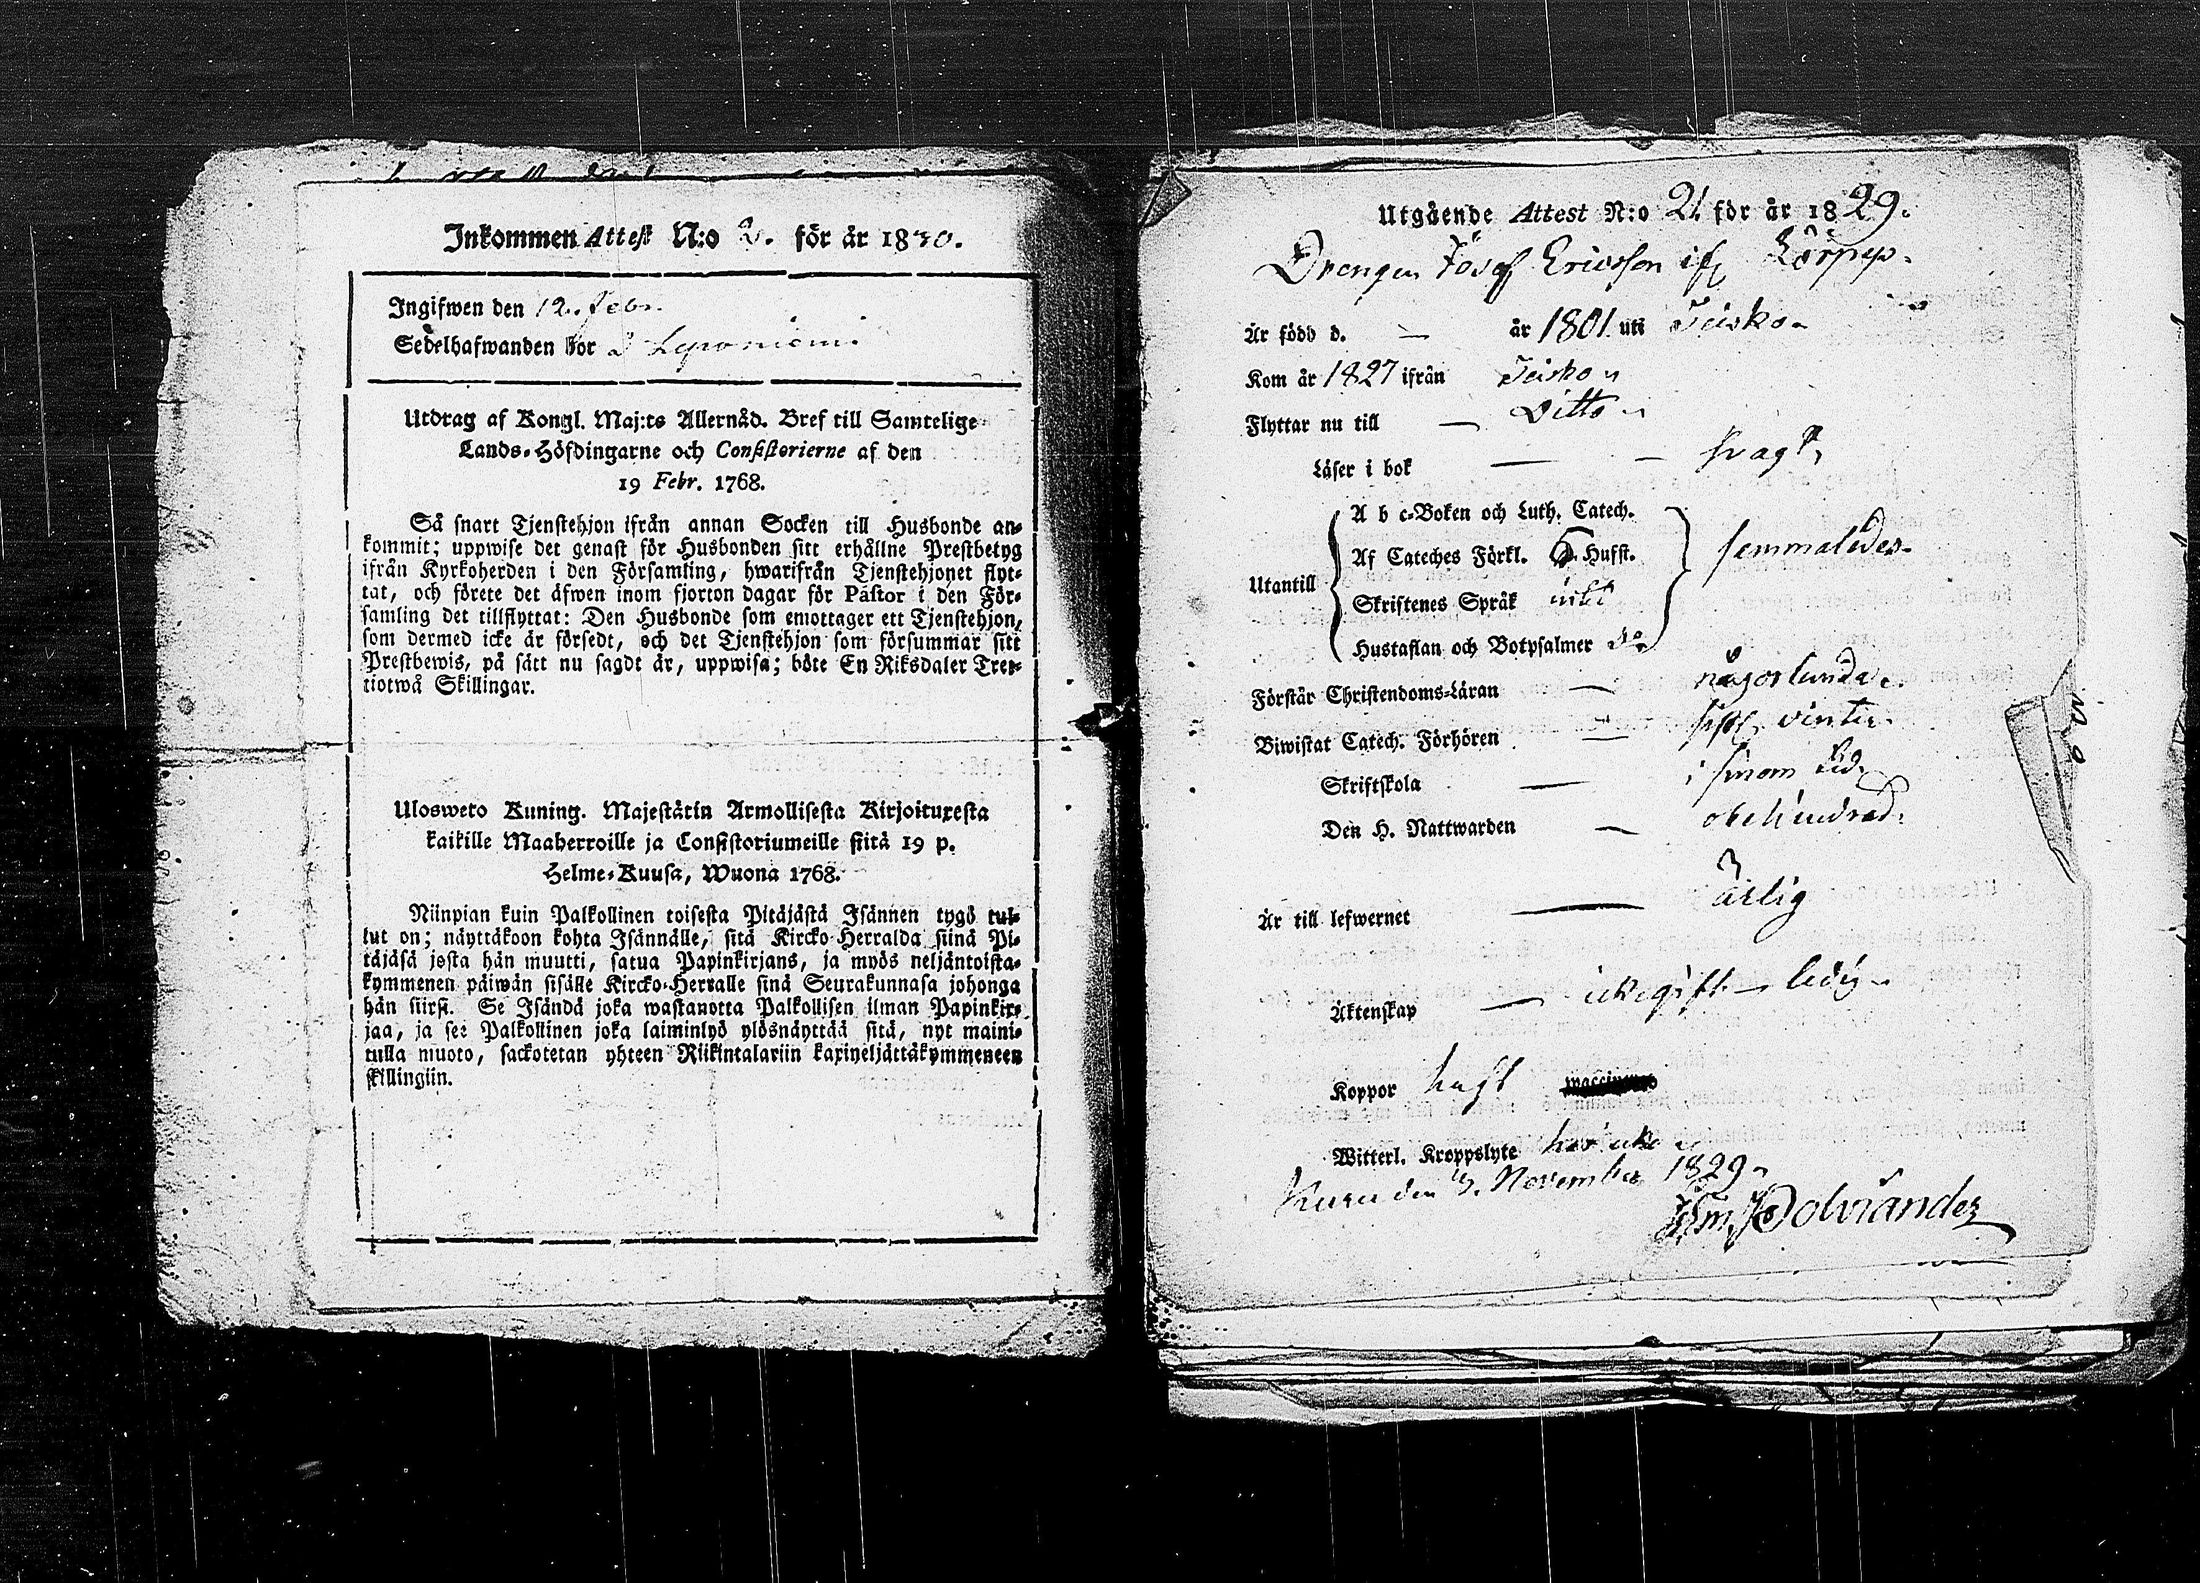 Inkommen Attest N:o 2. för år 1830.
Ingifwen den 12. Febr.
Sedelhafwanden bor
Utdrag af Kongl. Maj:ts Allernåd. Bref till Samtelige
Lands-Höfdingarne och Consistorierne af den
19 Febr. 1768.
Så snart Tjenstehjon ifrån annan Socken till Husbonde an-
kommit; uppwise det genast för Husbonden sitt erhållne Prestbetyg
ifrån Kyrkoherden i den Församling, hwarifrån Tjenstehjonet flyt-
tat, och förete det äfwen inom fjorton dagar för Pastor i den För-
samling det tillflyttat: Den Husbonde som emottager ett Tjenstehjon,
som dermed icke är försedt, och det Tjenstehjon som försummar sitt
Prestbewis, på sätt nu sagdt är, uppwisa; böte En Riksdaler Tret-
tiotwå Skillingar.
Ulosweto Kuning. Majestätin Armollisesta Kirjoituxesta
kaikille Maaherroille ja Consistoriumeille siitä 19 p.
Helme-Kuusa, Wuona 1768.
Niinpian kuin Palkollinen toisesta Pitäjästä Isännen tygö tul-
lut on; näyttäkoon kohta Isännälle, sitä Kircko-Herralda siinä Pi-
täjäsä josta hän muutti, satua Papinkirjans, ja myös neljäntoista-
kymmenen päiwän sisälle Kircko-Herralle sinä Seurakunnasa johonga
hän siirsi. Se Isändä joka wastanotta Palkollisen ilman Papinkir-
jaa, ja se Palkollinen joka laiminlyö ylösnäyttää sitä, nyt maini-
tulla muoto, sackotetan yhteen Riikintalariin kaxineljättäkymmeneen
skillingiin.
Utgående Attest N:o 21 för år 1829.
Drengen Josef Ericsson
Är född d. — år 1801 uti Teisko
Kom år 1827 ifrån Teisko
Flyttar nu till — Ditto
Läser i bok — — svagt
A b c-Boken och Luth. Catech.
Af Cateches Förkl. 6 Hufst.
Utantill
Skriftenes Språk
Hustaflan och Botpsalmer do
semmaledes
Förstår Christendoms-Läran — någorlunda
Biwistat Catech. Förhören — sistl. vinter
Skriftskola — i sinom tid
Den H. Nattwarden — obehindrad
Är till lefwernet — ärlig
Äktenskap — ickegift — ledig
Koppor haft
Witterl. Kroppslyte har icke
Kuru den November 1829